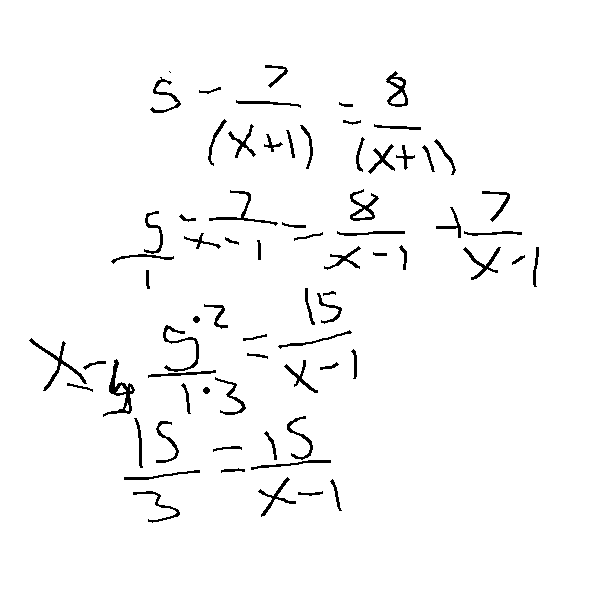 5 - 7/(x+1) = 8/(x+1)
5/1 - 7/x-1 = 8/x-1 + 7/x-1
5·2/1·3 = 15/x-1
15/3 = 15/x-1